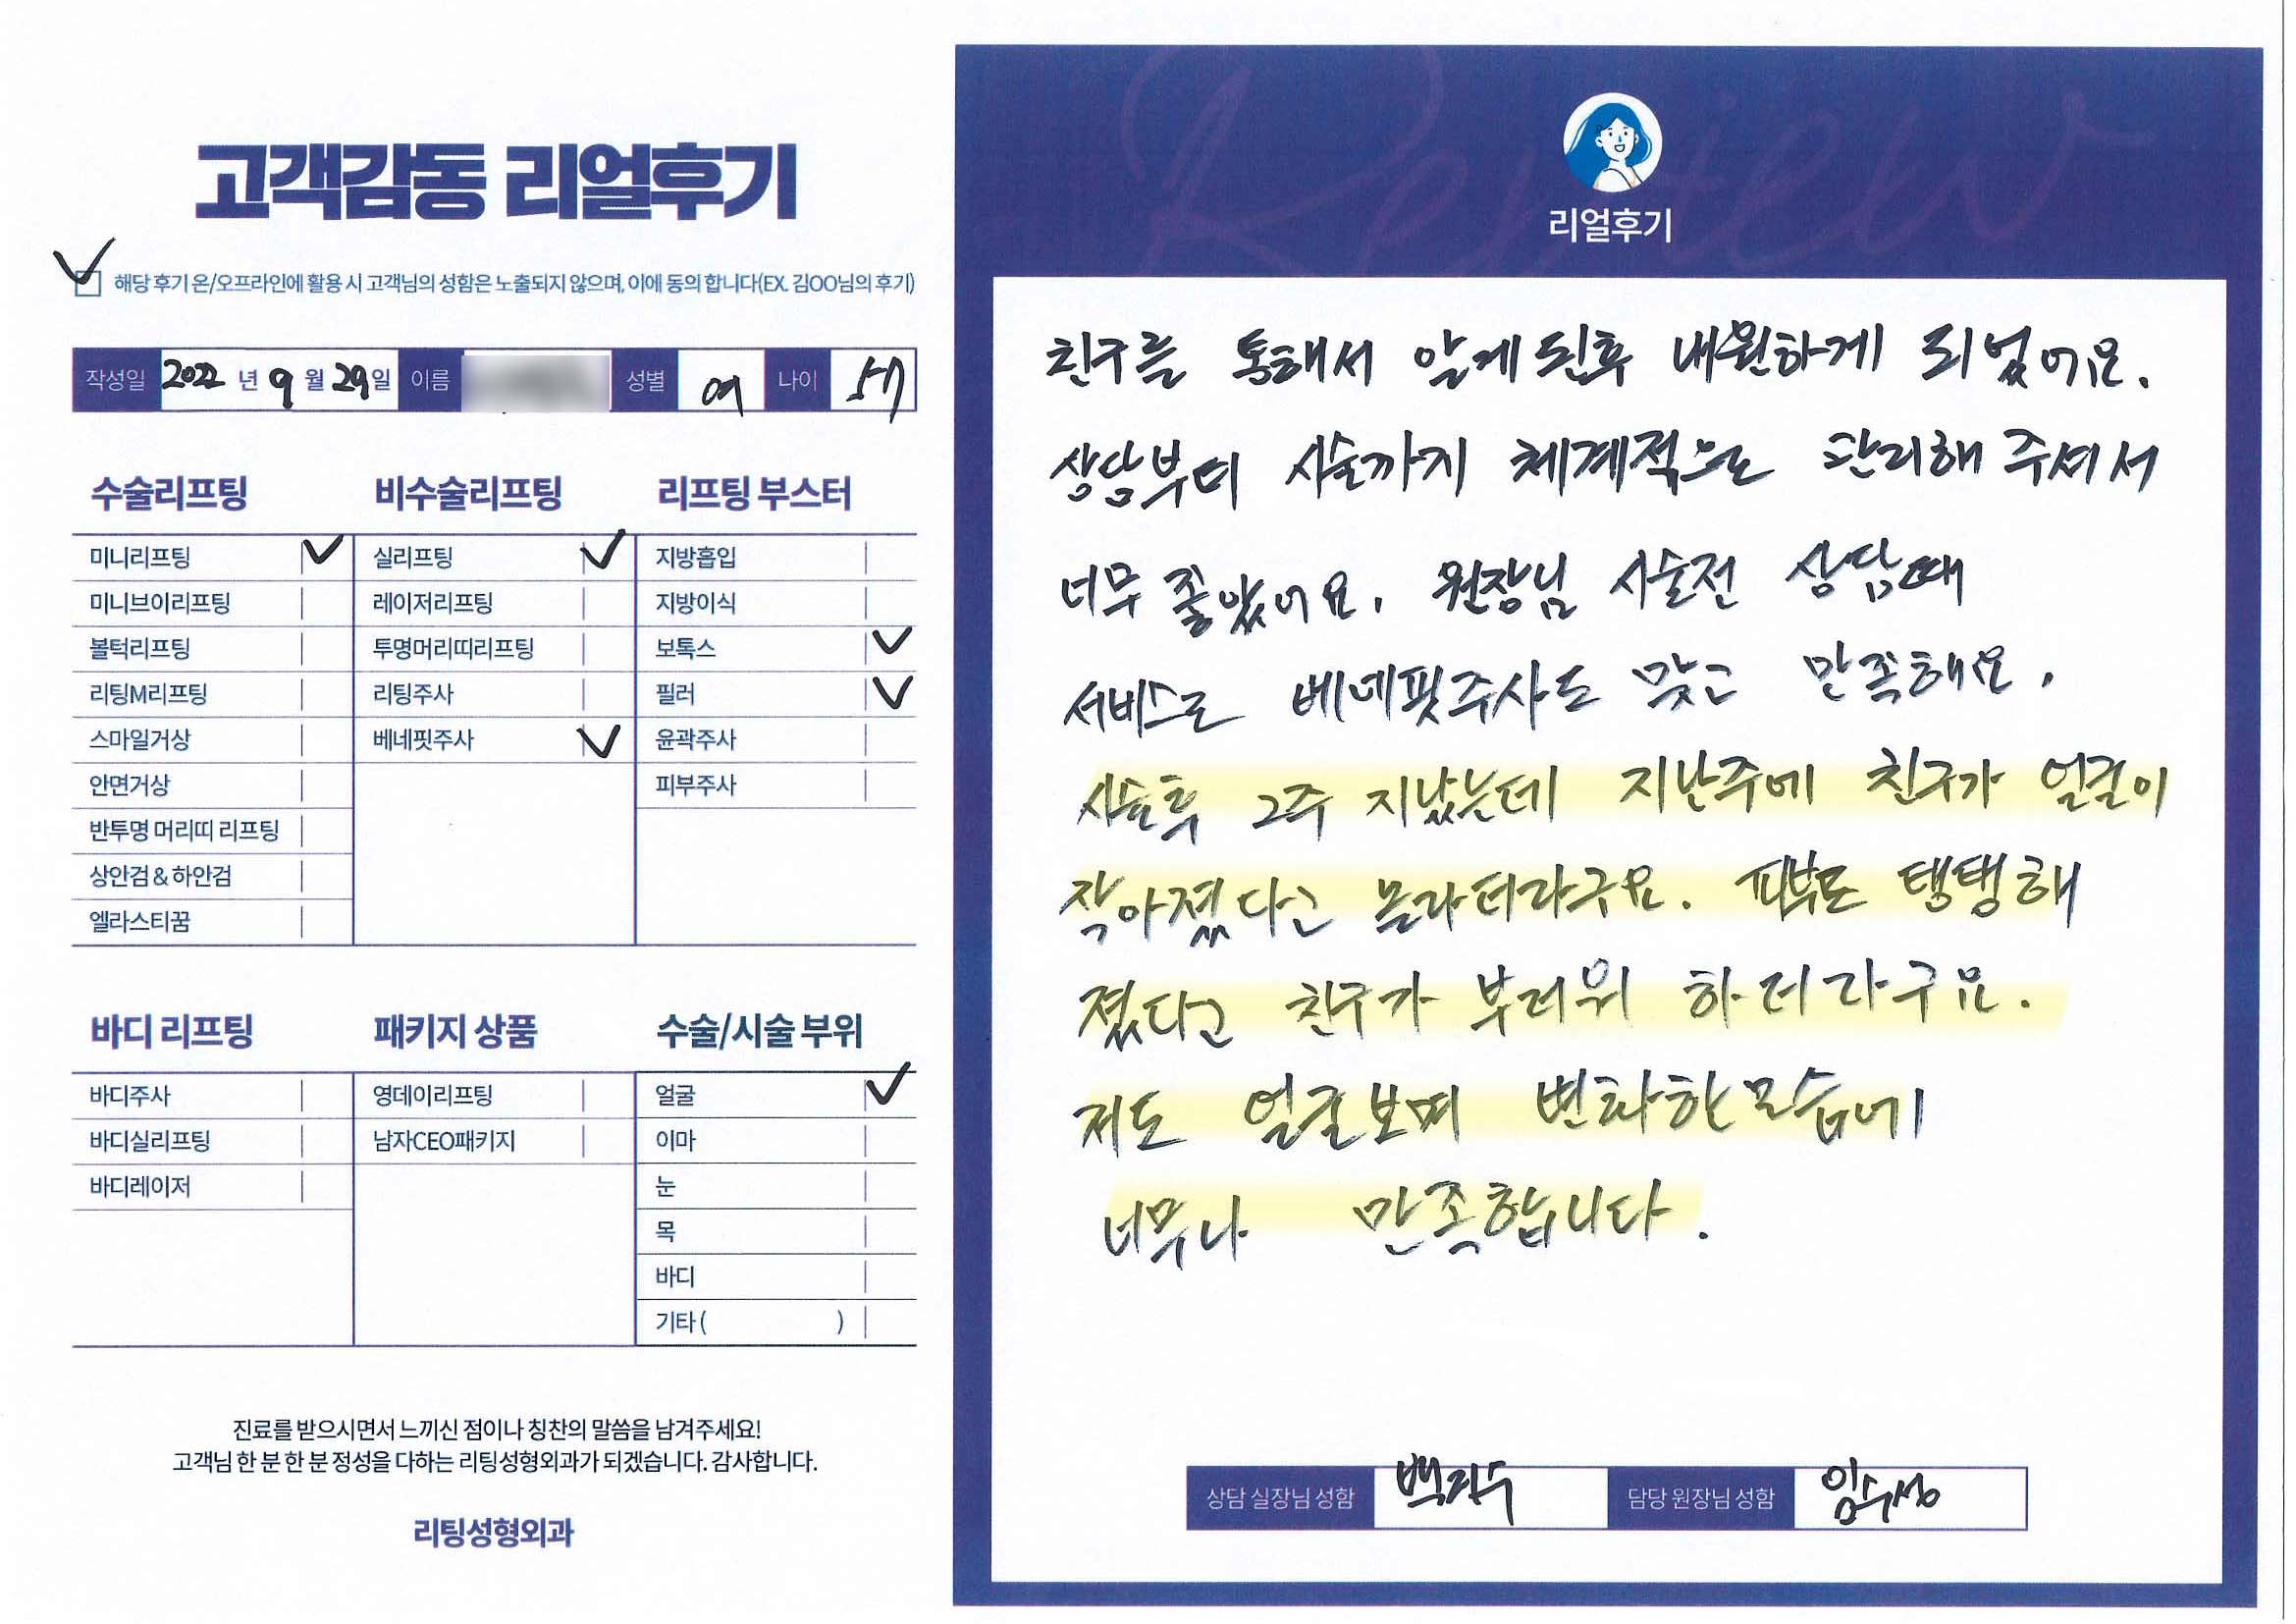 고객감동 리얼후기
해당 후기 온/오프라인에 활용 시 고객님의 성함은 노출되지 않으며, 이에 동의 합니다(EX. 김OO님의 후기)
작성일 2022 년 9 월 29일 이름 성별 여 나이 57
수술리프팅
미니리프팅
미니브이리프팅
볼턱리프팅
리팅M리프팅
스마일거상
안면거상
반투명 머리띠 리프팅
상안검 & 하안검
엘라스티꿈
비수술리프팅
실리프팅
레이저리프팅
투명머리띠리프팅
리팅주사
베네핏주사
리프팅 부스터
지방흡입
지방이식
보톡스
필러
윤곽주사
피부주사
바디 리프팅
바디주사
바디실리프팅
바디레이저
패키지 상품
영데이리프팅
남자CEO패키지
수술/시술 부위
얼굴
이마
눈
목
바디
기타 ( )
진료를 받으시면서 느끼신 점이나 칭찬의 말씀을 남겨주세요!
고객님 한 분 한 분 정성을 다하는 리팅성형외과가 되겠습니다. 감사합니다.
리팅성형외과
Review
리얼후기
친구를 통해서 알게 된후 내원하게 되었어요.
상담부터 시술까지 체계적으로 관리해 주셔서
너무 좋았어요. 원장님 시술전 상담때
서비스로 베네핏주사도 맞고 만족해요.
시술후 2주 지났는데 지난주에 친구가 얼굴이
작아졌다고 놀라더라구요. 피부도 탱탱해
졌다고 친구가 부러워 하더라구요.
저도 얼굴보며 변화한모습에
너무나 만족합니다.
상담 실장님 성함 담당 원장님 성함 임수성